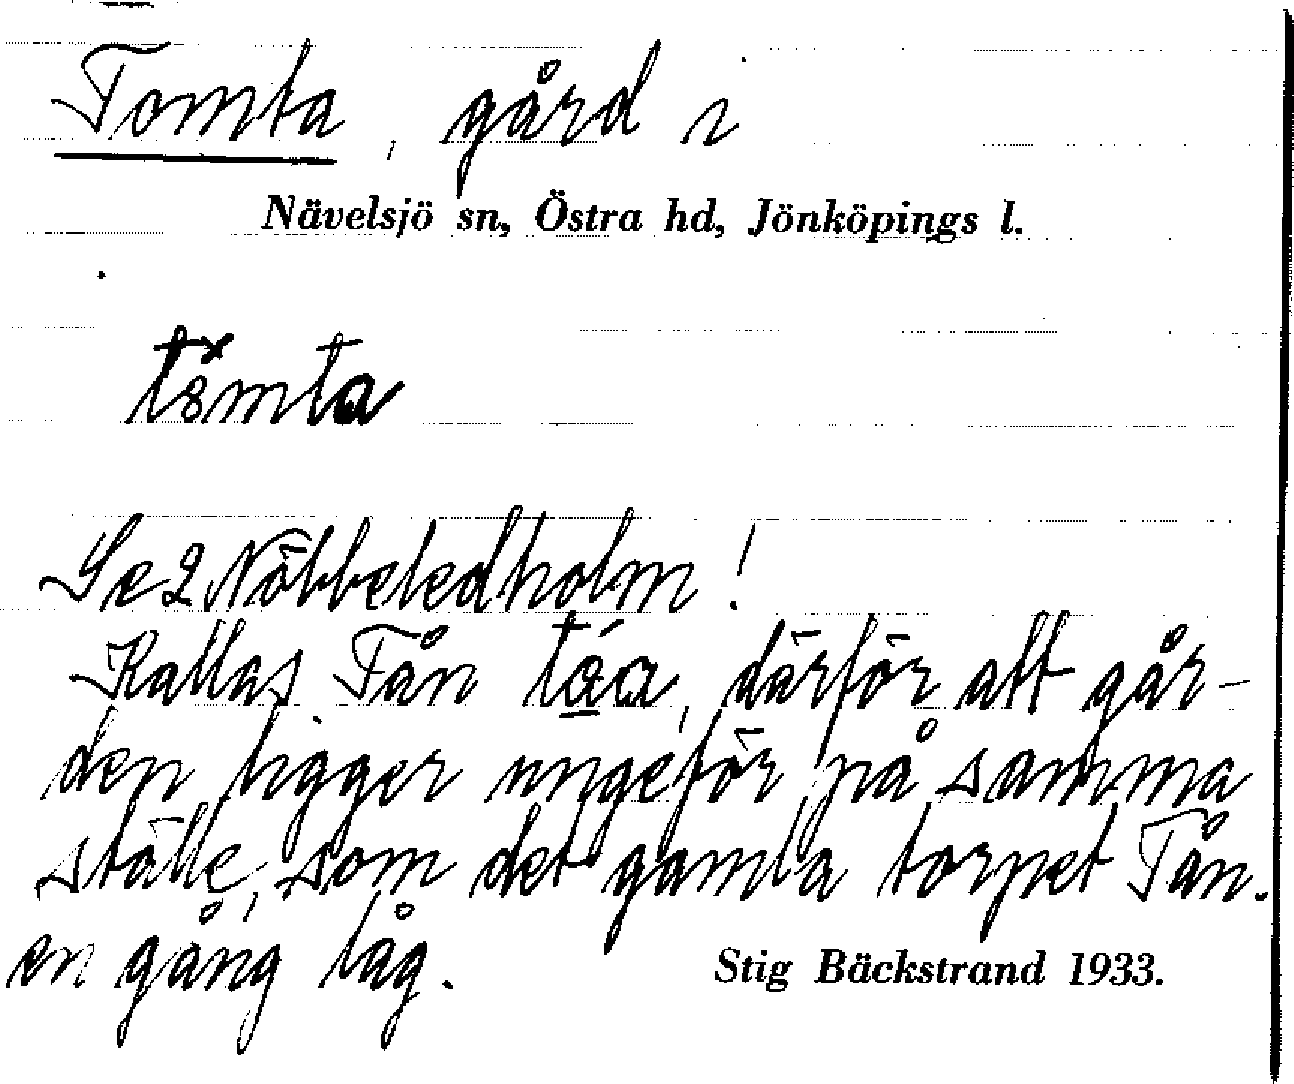 Tomta, gård i
Nävelsjö sn, Östra hd, Jönköpings l.
Se 2 Nöbbeledholm!
Kallas Tån, därför att går-
den ligger ungefär på samma
ställe, som det gamla torpet Tån.
en gång låg.
Stig Bäckstrand 1933.